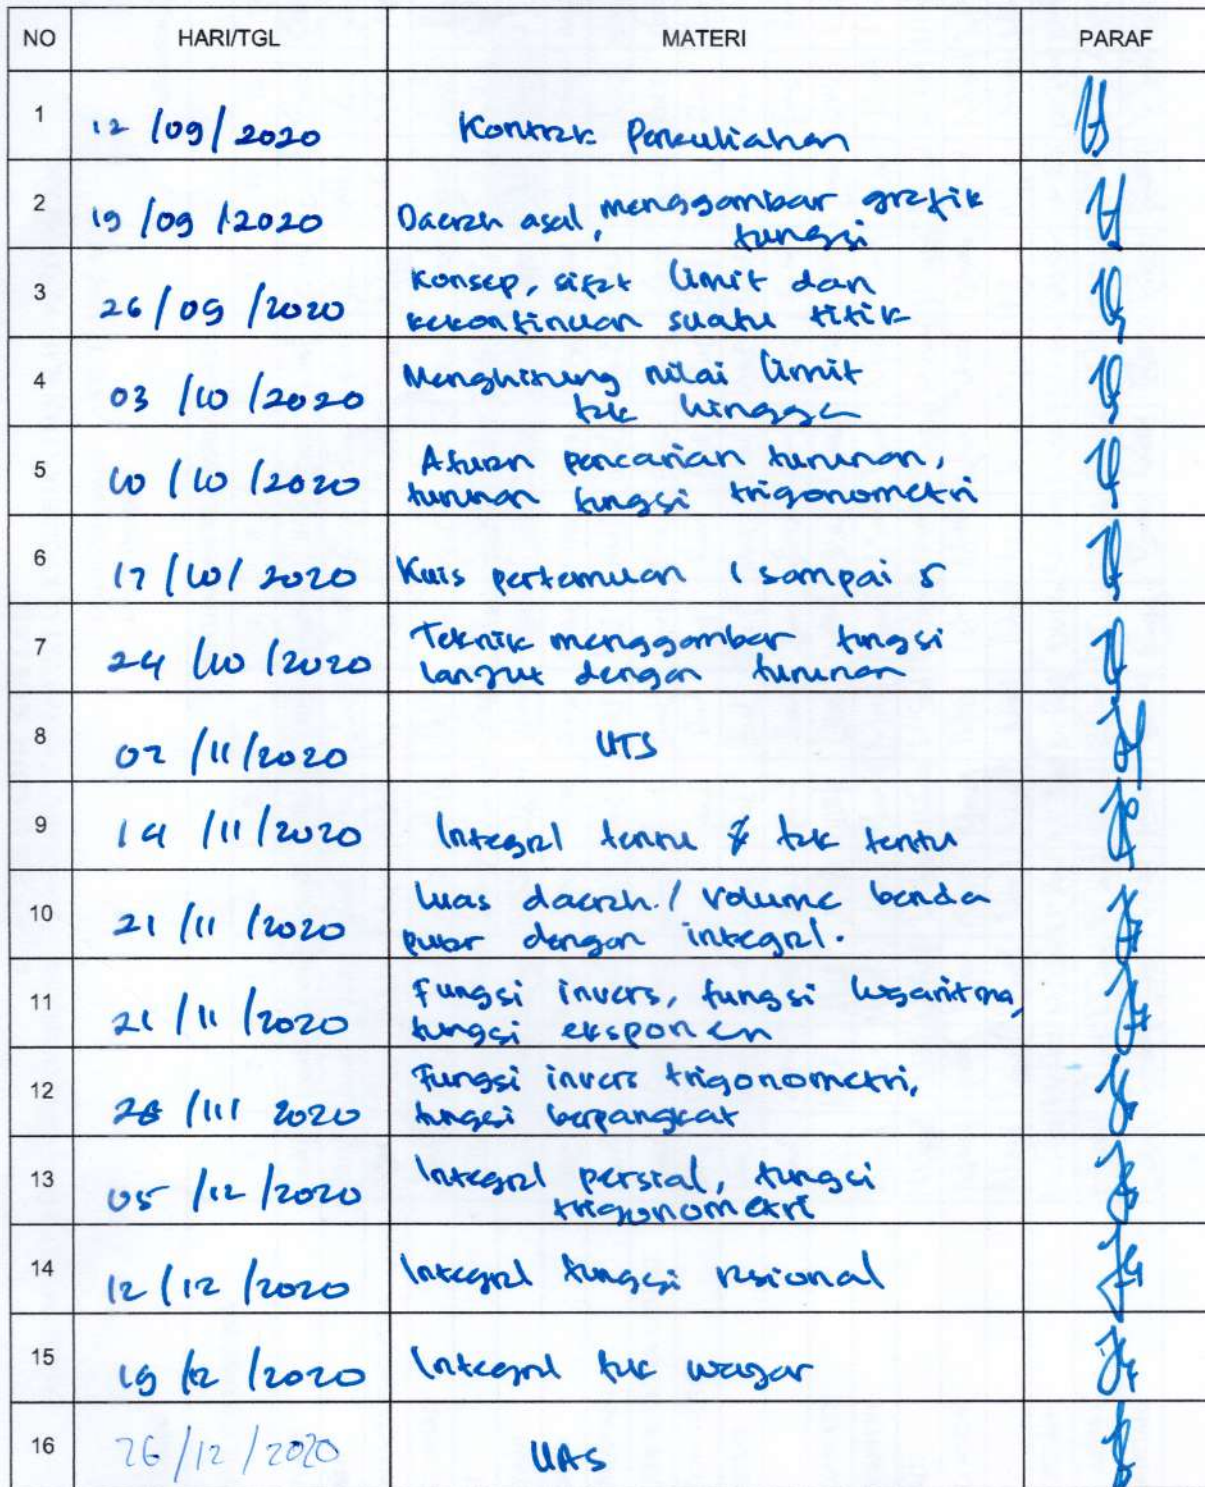 NO HARI/TGL MATERI PARAF
1 12/09/2020 Kontrak Perkuliahan
2 19/09/2020 Daerah asal, menggambar grafik
fungsi
3 26/09/2020 Konsep, sifat limit dan
kekontinuan suatu titik
4 03/10/2020 Menghitung nilai limit
tak hingga
5 10/10/2020 Aturan pencarian turunan,
turunan fungsi trigonometri
6 17/10/2020 Kuis pertemuan 1 sampai 5
7 24/10/2020 Teknik menggambar fungsi
lanjut dengan turunan
8 07/11/2020 UTS
9 14/11/2020 Integral tentu & tak tentu
10 21/11/2020 Luas daerah/ volume benda
putar dengan integral.
11 21/11/2020 Fungsi invers, fungsi logaritma,
fungsi eksponen
12 28/11/2020 Fungsi invers trigonometri,
fungsi berpangkat
13 05/12/2020 Integral persial, fungsi
trigonometri
14 12/12/2020 Integral fungsi rasional
15 19/12/2020 Integral tak wajar
16 26/12/2020 UAS